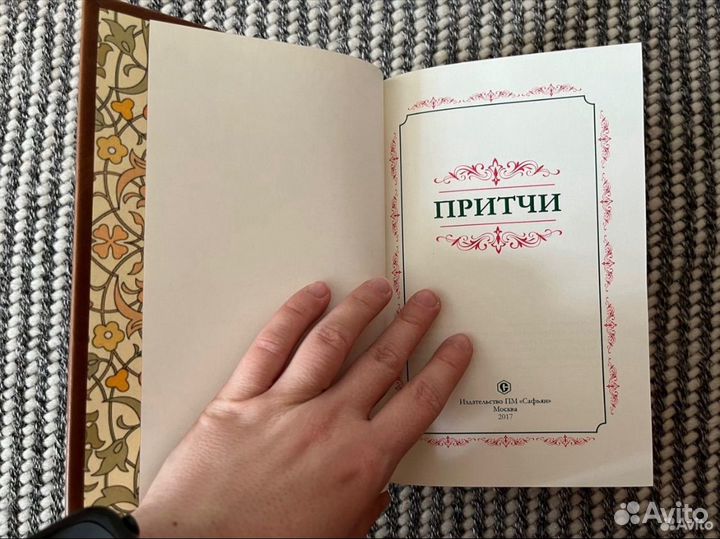 ПРИТЧИ
Издательство ПМ «Сафьян»
Москва
2017
Avito
Avito